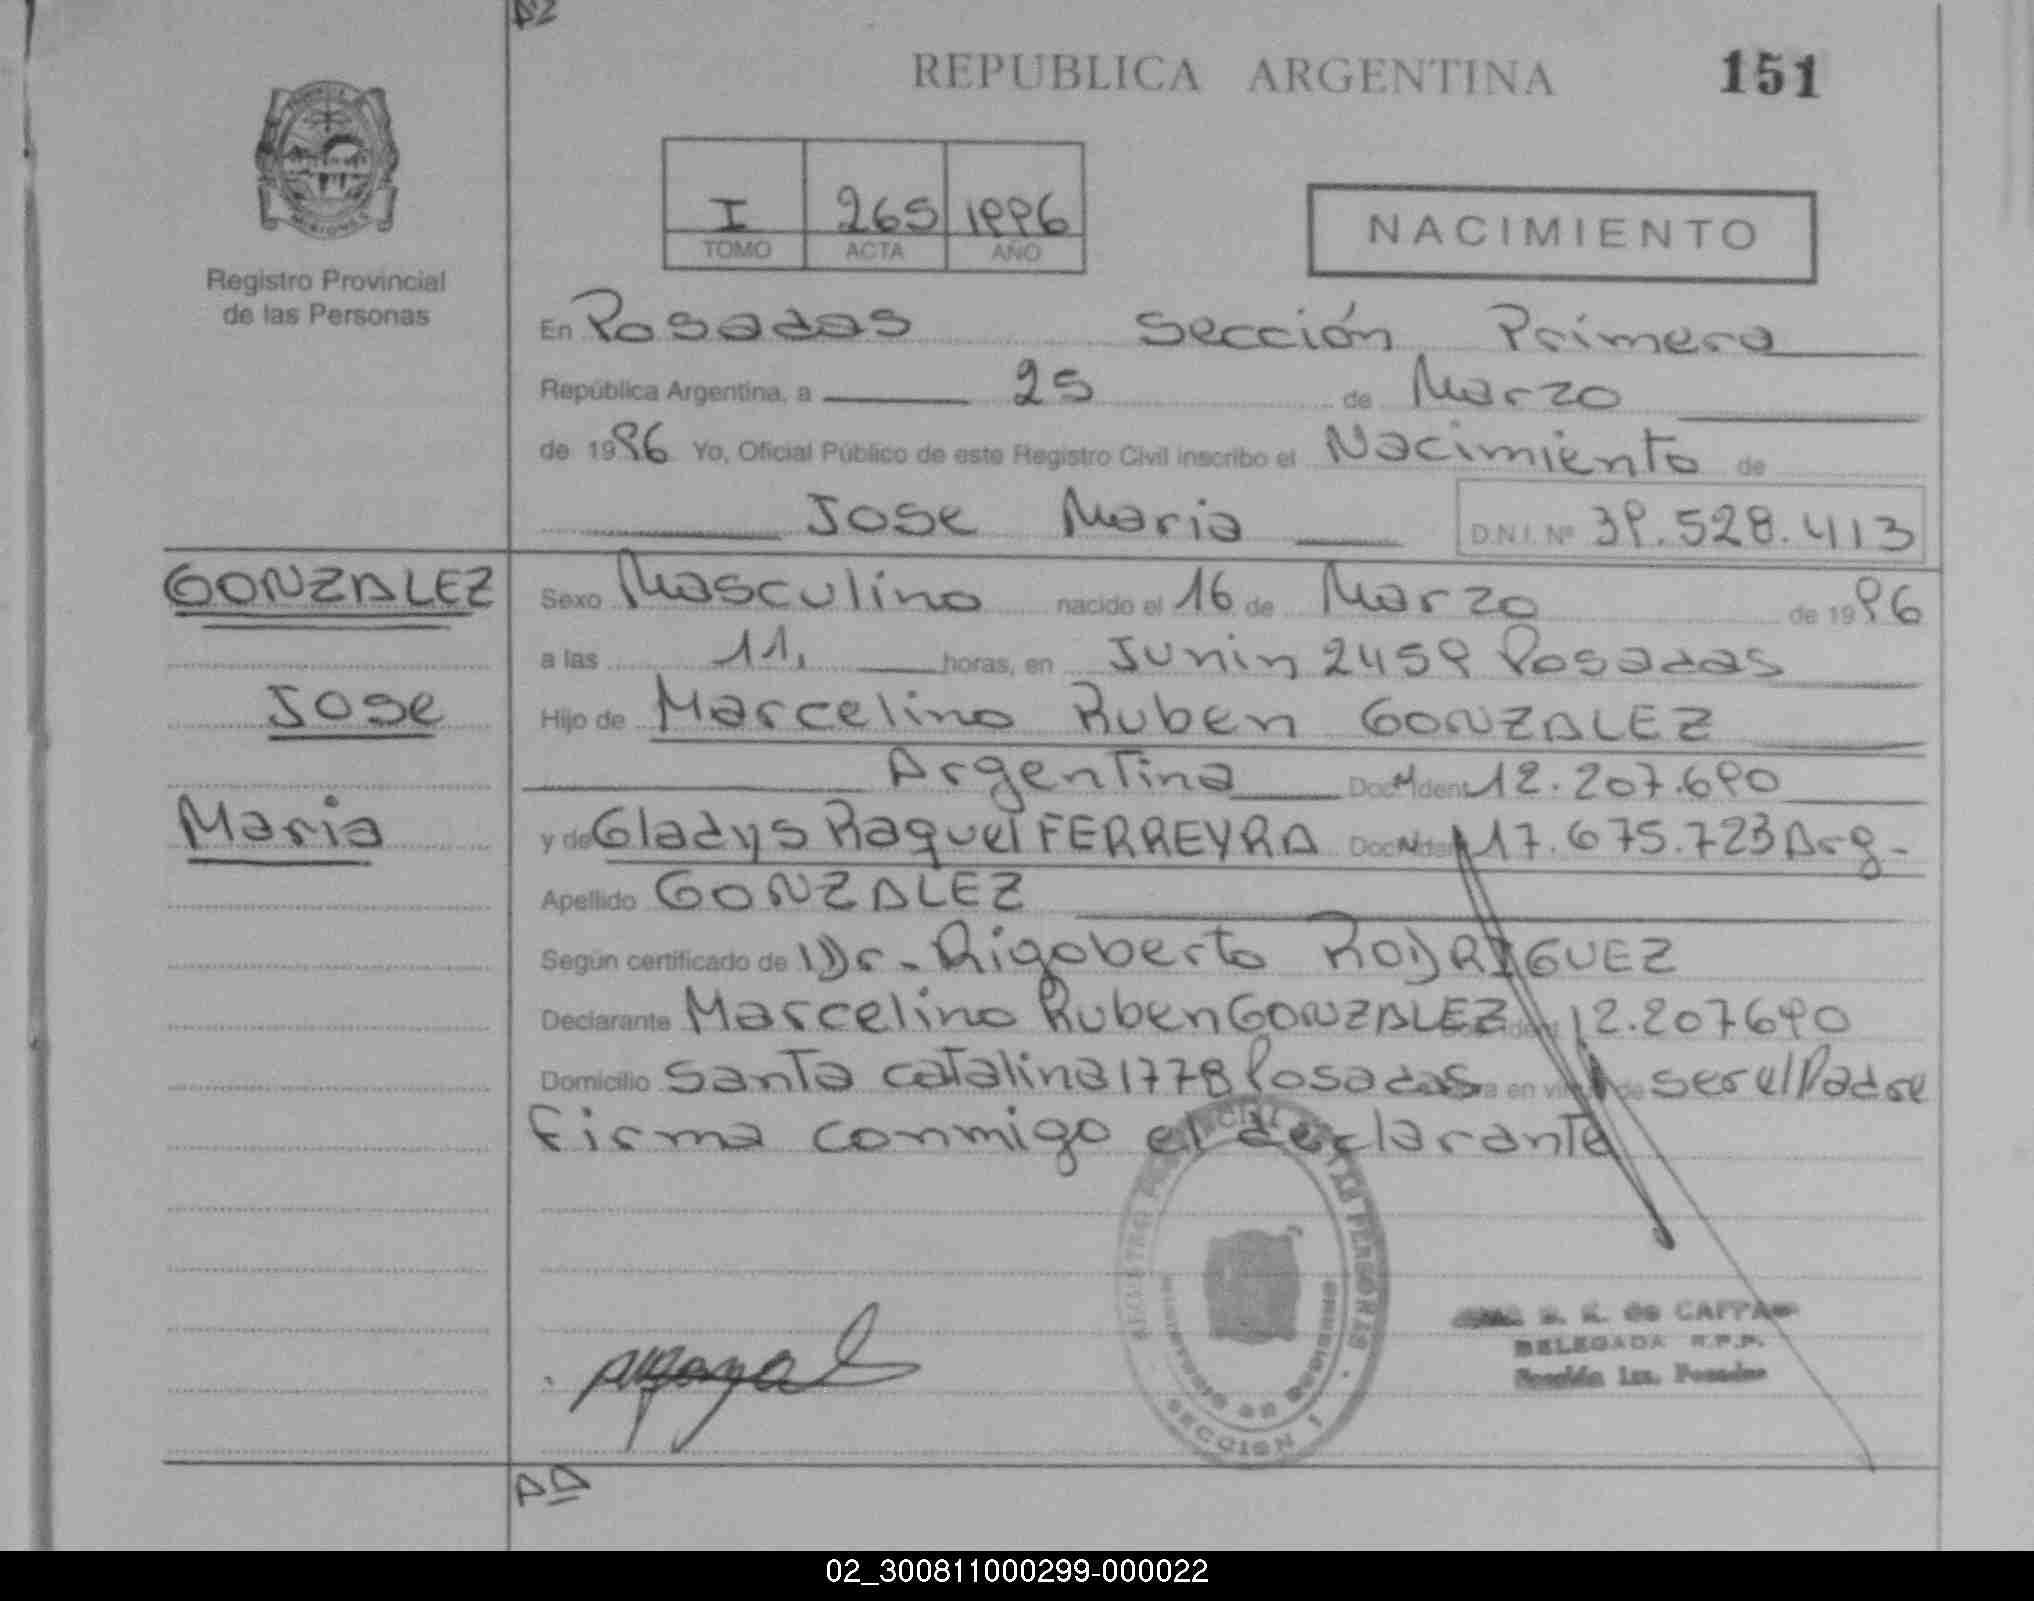 REPUBLICA ARGENTINA 151
I 265 1996
TOMO ACTA AÑO
NACIMIENTO
MISIONES
Registro Provincial
de las Personas
En Posadas Sección Primera
República Argentina, a 25 de Marzo
de 1996 Yo, Oficial Público de este Registro Civil inscribo el Nacimiento de
Jose Maria D.N.I. Nº 39.528.413
GONZALEZ
Jose
Maria
Sexo Masculino nacido el 16 de Marzo de 1996
a las 11, horas, en Junin 2459 Posadas
Hijo de Marcelino Ruben GONZALEZ
Argentina Doc. Ident 12.207.690
y de Gladys Raquel FERREYRA Doc. 17.675.723 Arg-
Apellido GONZALEZ
Según certificado de Dr. Rigoberto RODRIGUEZ
Declarante Marcelino Ruben GONZALEZ 12.207690
Domicilio Santa Catalina 1778 Posadas ser el Padre
firma conmigo el declarante
REGISTRO DE LAS PERSONAS
MINISTERIO DE GOBIERNO
SECCION 1
de CAPPA
DELEGADA R.P.P.
Sección 1ra. Posadas
02_300811000299-000022